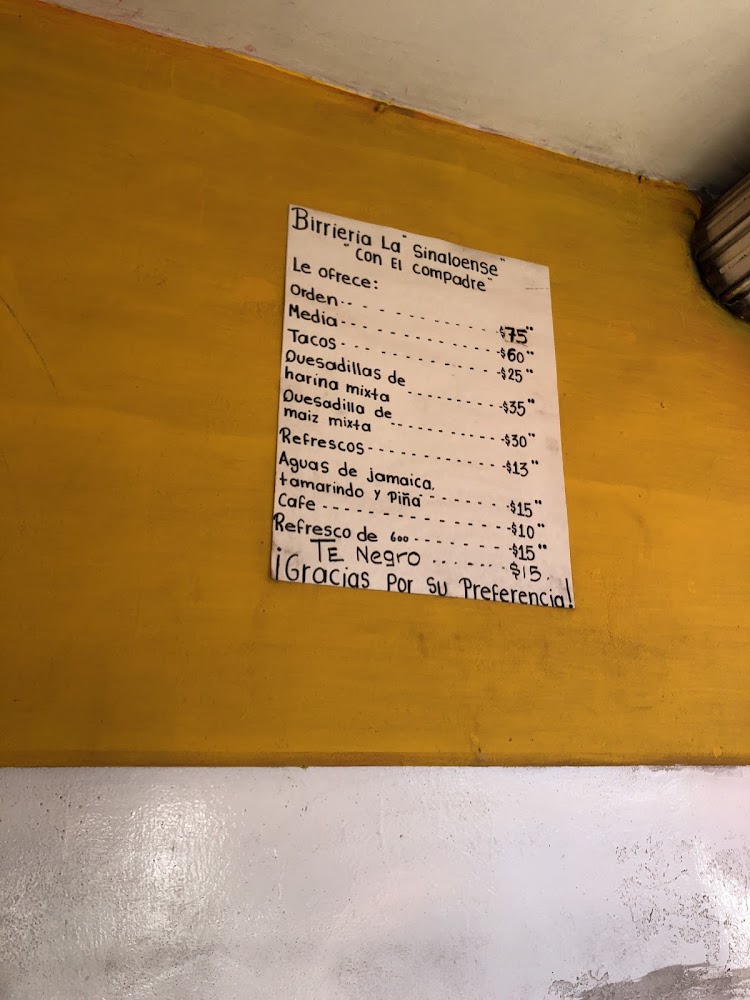 Birrieria La "Sinaloense"
"Con El Compadre"
Le ofrece:
Orden -------------- $75"
Media -------------- $60"
Tacos -------------- $25"
Quesadillas de
harina mixta --------- $35"
Quesadilla de
maiz mixta ---------- $30"
Refrescos ----------- $13"
Aguas de jamaica,
tamarindo y Piña ------- $15"
Cafe -------------- $10"
Refresco de 600 ------- $15"
TE Negro ........ $15.
¡Gracias Por Su Preferencia!